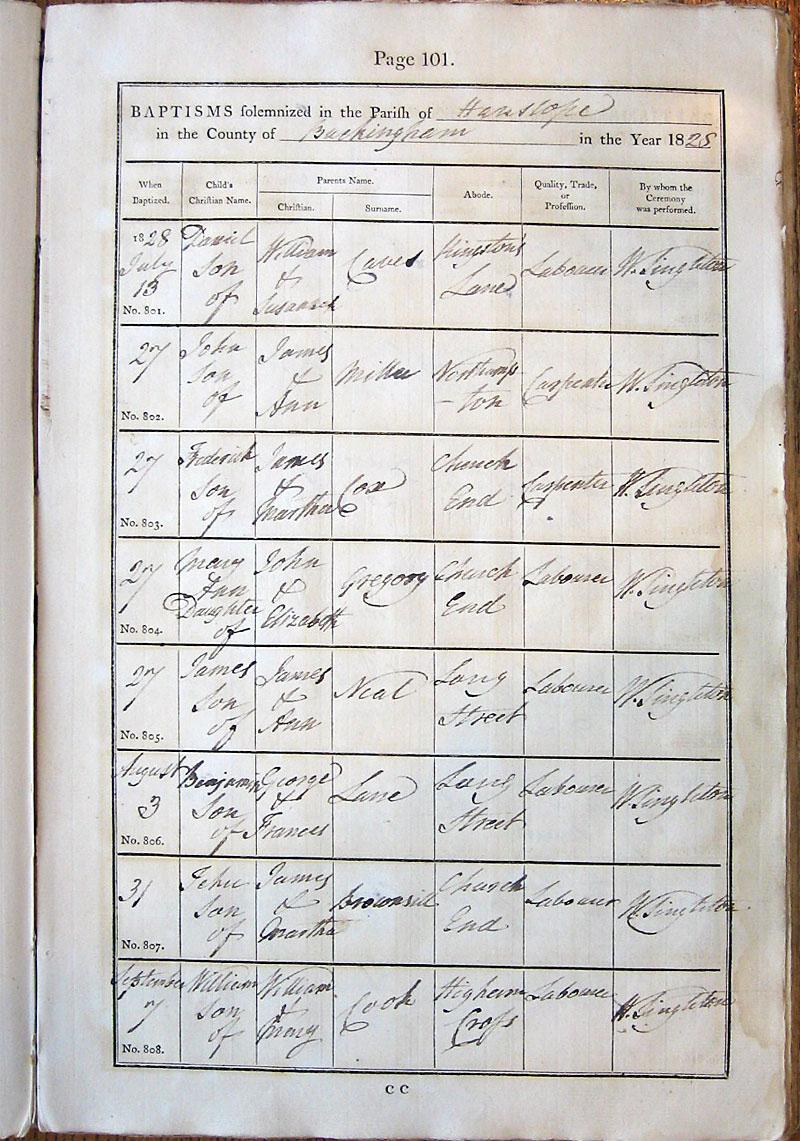 Page 101.
BAPTISMS solemnized in the Parish of Hanslope
in the County of Buckingham in the Year 1828
When Baptized. Child's Christian Name. Parents Name. Abode. Quality, Trade, or Profession. By whom the Ceremony was performed.
Christian. Surname.
1828 July 13 No. 801. Daniel Son of William & Susannah Caves Kingston's Lane Labourer W. Singleton
27 No. 802. John Son of James & Ann Miller Northampton Carpenter W. Singleton
27 No. 803. Frederick Son of James & Martha Cox Church End Carpenter W. Singleton
27 No. 804. Mary Ann Daughter of John & Elizabeth Gregory Church End Labourer W. Singleton
27 No. 805. James Son of James & Ann Neal Long Street Labourer W. Singleton
August 3 No. 806. Benjamin Son of George & Frances Lane Long Street Labourer W. Singleton
31 No. 807. Son of James & Martha Brownsill Church End Labourer W. Singleton
September 7 No. 808. William Son of William & Mary Cook Higham Cross Labourer W. Singleton
C C